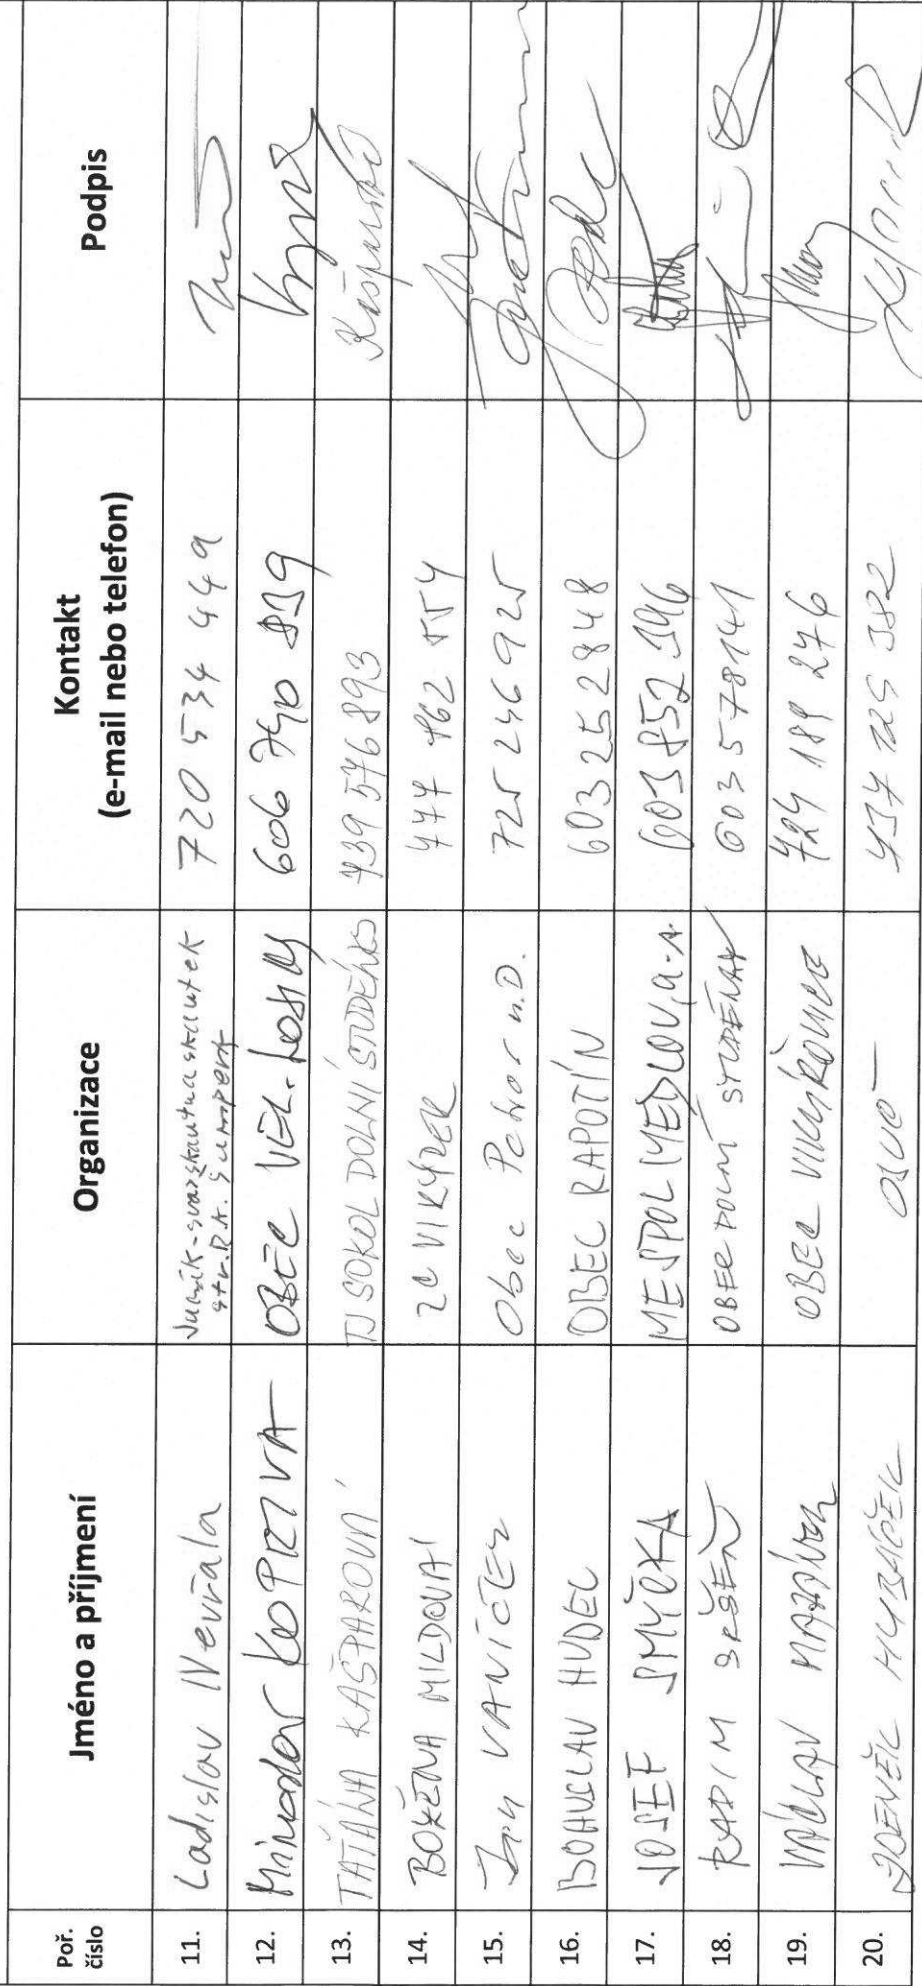 Poř. číslo Jméno a příjmení Organizace Kontakt (e-mail nebo telefon) Podpis
11. Ladislav Nevrala Junák-svaz skautů a skautek str. R.K. Šumperk 720 534 449
12. Miroslav KOPŘIVA OBEC VEL. LOSINY 606 740 839
13. TAŤÁNA KAŠPAROVÁ TJ SOKOL DOLNÍ STUDÉNKY 739 576 893 Kašparová
14. BOŽENA MILDOVÁ ZC VIKÝREK 777 762 554
15. Jiří VANÍČEK Obec Petrov n.D. 725 246 925
16. BOHUSLAV HUDEC OBEC RAPOTÍN 603 252 848
17. JOSEF SMYČKA MESPOL MEDLOV, a.s. 601 852 396
18. RADIM SRŠEŇ OBEC DOLNÍ STUDÉNKY 603 578 141
19. VÁCLAV MAZÁNEK OBEC VIKÝŘOVICE 724 189 276
20. ZDENĚK OSVČ 737 225 382